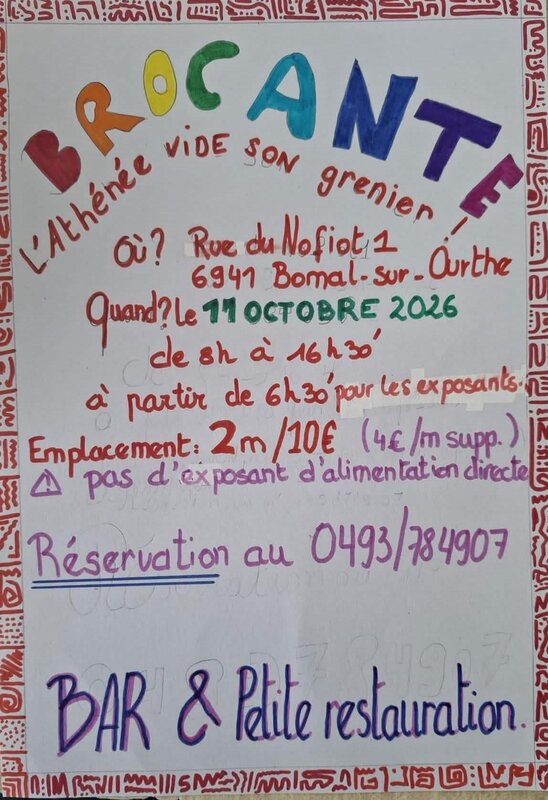 BROCANTE
L'Athénée VIDE SON grenier !
Où? Rue du Nofiot 1
6941 Bomal-sur-Ourthe
Quand? Le 11 OCTOBRE 2026
de 8h à 16h30'
à partir de 6h30' pour les exposants.
Emplacement: 2m/10€ (4€/m supp.)
⚠ pas d'exposant d'alimentation directe
Réservation au 0493/784907
BAR & Petite restauration.